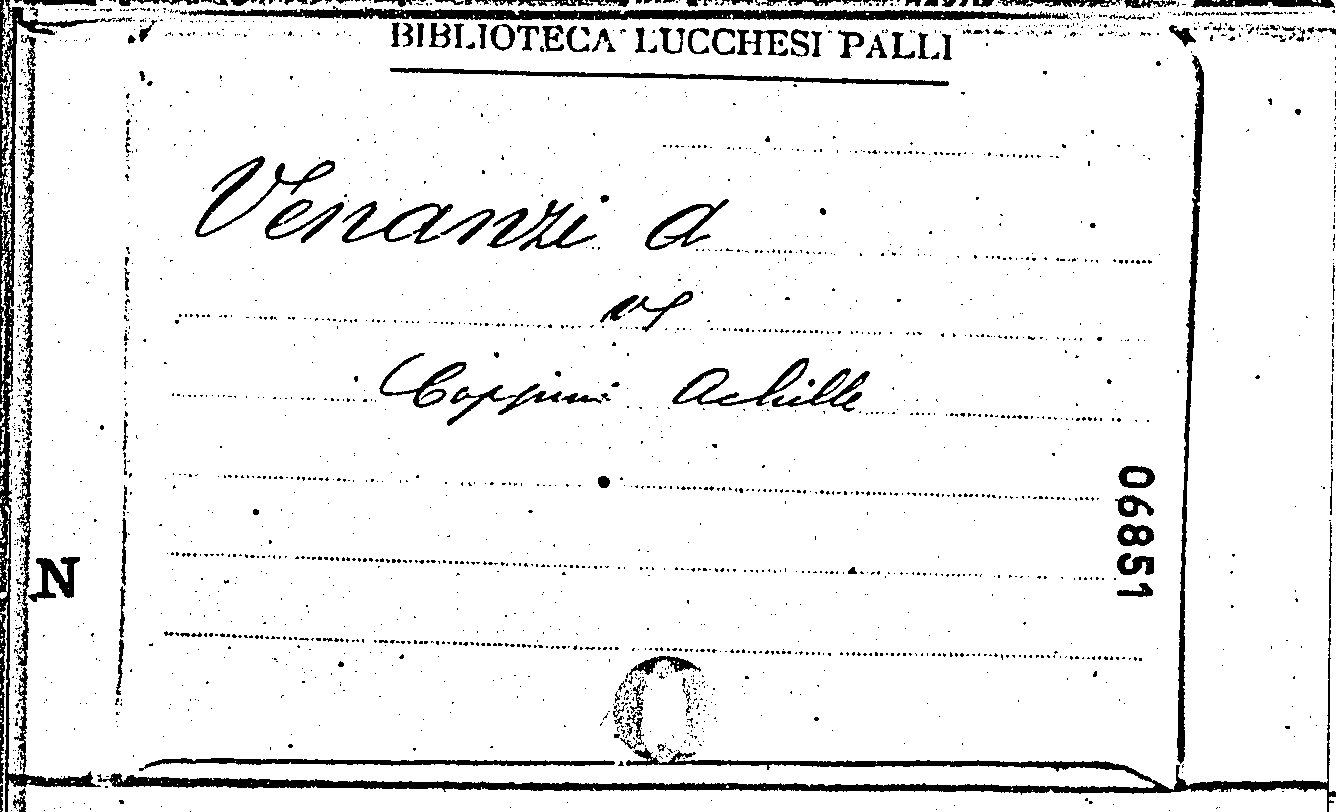 BIBLIOTECA LUCCHESI PALLI
Venanzi A
vs
Coppini Achille
06851
N